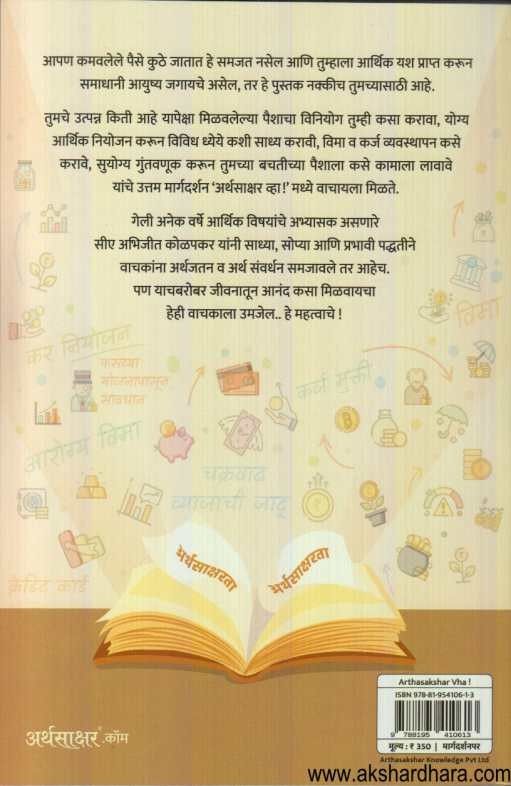 आपण कमवलेले पैसे कुठे जातात हे समजत नसेल आणि तुम्हाला आर्थिक यश प्राप्त करून
समाधानी आयुष्य जगायचे असेल, तर हे पुस्तक नक्कीच तुमच्यासाठी आहे.
तुमचे उत्पन्न किती आहे यापेक्षा मिळवलेल्या पैशाचा विनियोग तुम्ही कसा करावा, योग्य
आर्थिक नियोजन करून विविध ध्येये कशी साध्य करावी, विमा व कर्ज व्यवस्थापन कसे
करावे, सुयोग्य गुंतवणूक करून तुमच्या बचतीच्या पैशाला कसे कामाला लावावे
यांचे उत्तम मार्गदर्शन ‘अर्थसाक्षर व्हा!’ मध्ये वाचायला मिळते.
गेली अनेक वर्षे आर्थिक विषयांचे अभ्यासक असणारे
सीए अभिजीत कोळपकर यांनी साध्या, सोप्या आणि प्रभावी पद्धतीने
वाचकांना अर्थजतन व अर्थ संवर्धन समजावले तर आहेच.
पण याचबरोबर जीवनातून आनंद कसा मिळवायचा
हेही वाचकाला उमजेल.. हे महत्वाचे !
विमा
कर नियोजन
फसव्या
योजनांपासून
सावधान
कर्ज मुक्ती
आरोग्य विमा
चक्रवाढ
व्याजाची जादू
क्रेडिट कार्ड
अर्थसाक्षरता
अर्थसाक्षरता
अर्थसाक्षर.कॉम
Arthasakshar Vha !
ISBN 978-81-954106-1-3
9 788195 410613
मूल्य : ₹ 350 | मार्गदर्शनपर
Arthasakshar Knowledge Pvt Ltd
www.akshardhara.com